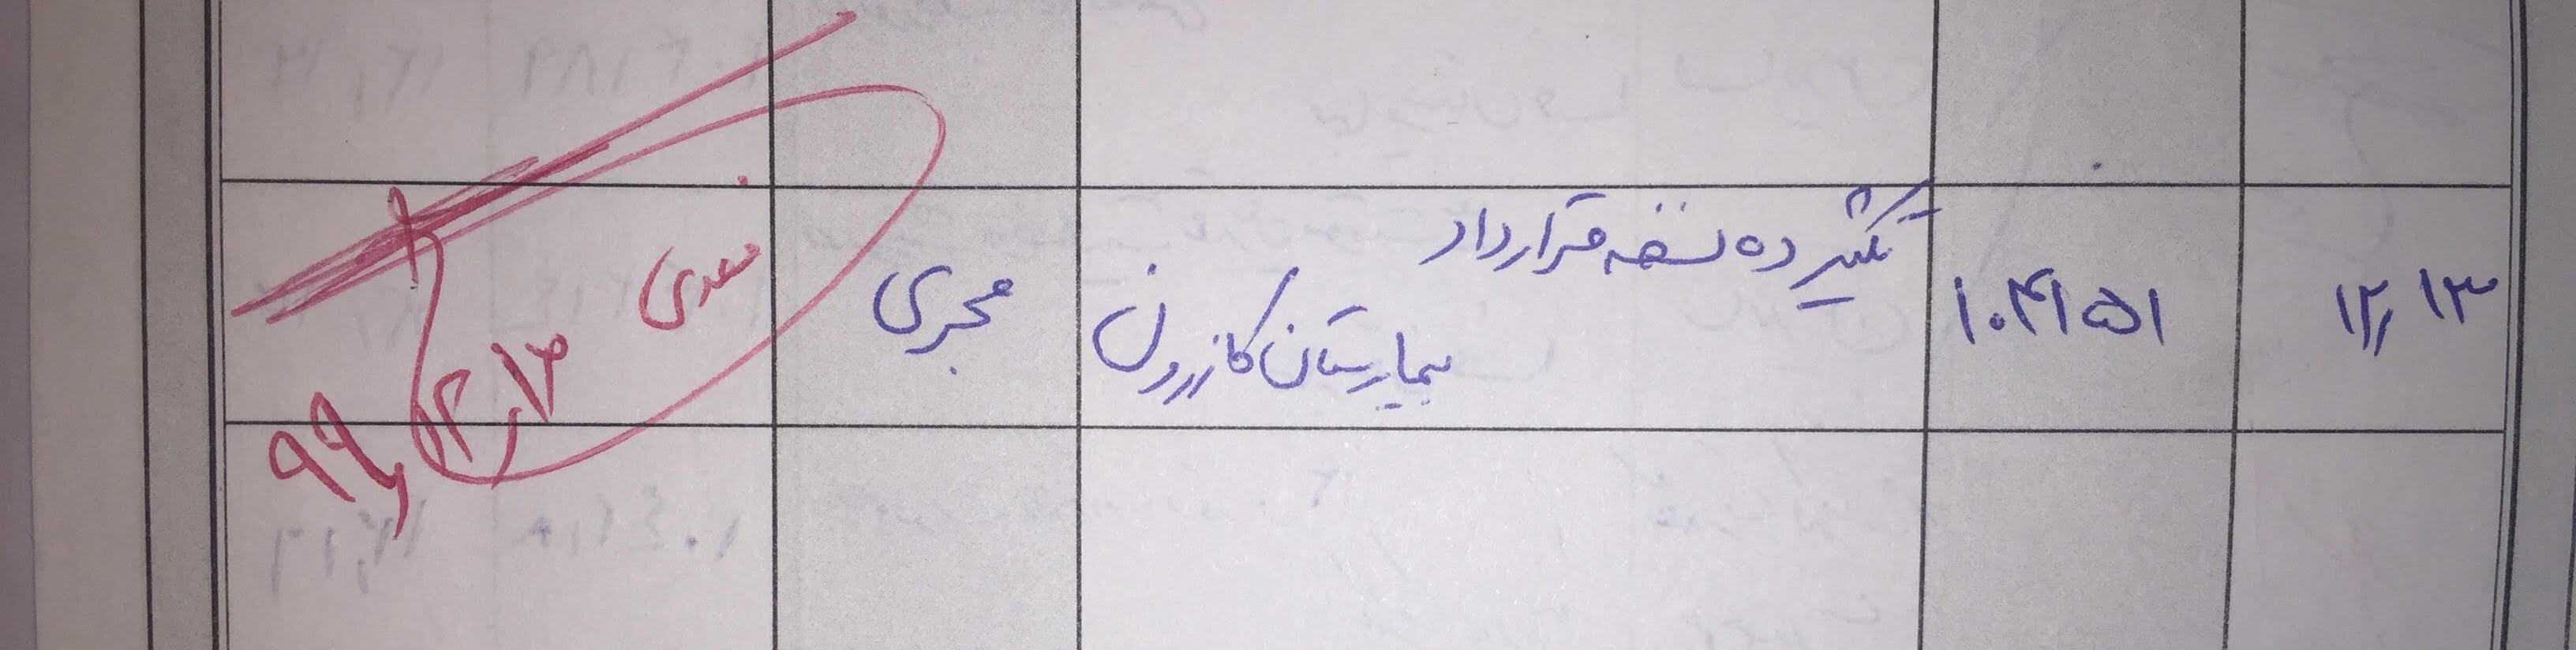 ۱۲,۱۳
۱۰۴۱۵۱
تکثیر ده نسخه قرارداد
بیمارستان کازرون
مجری
سعدی
۹۹,۱۲,۱۳